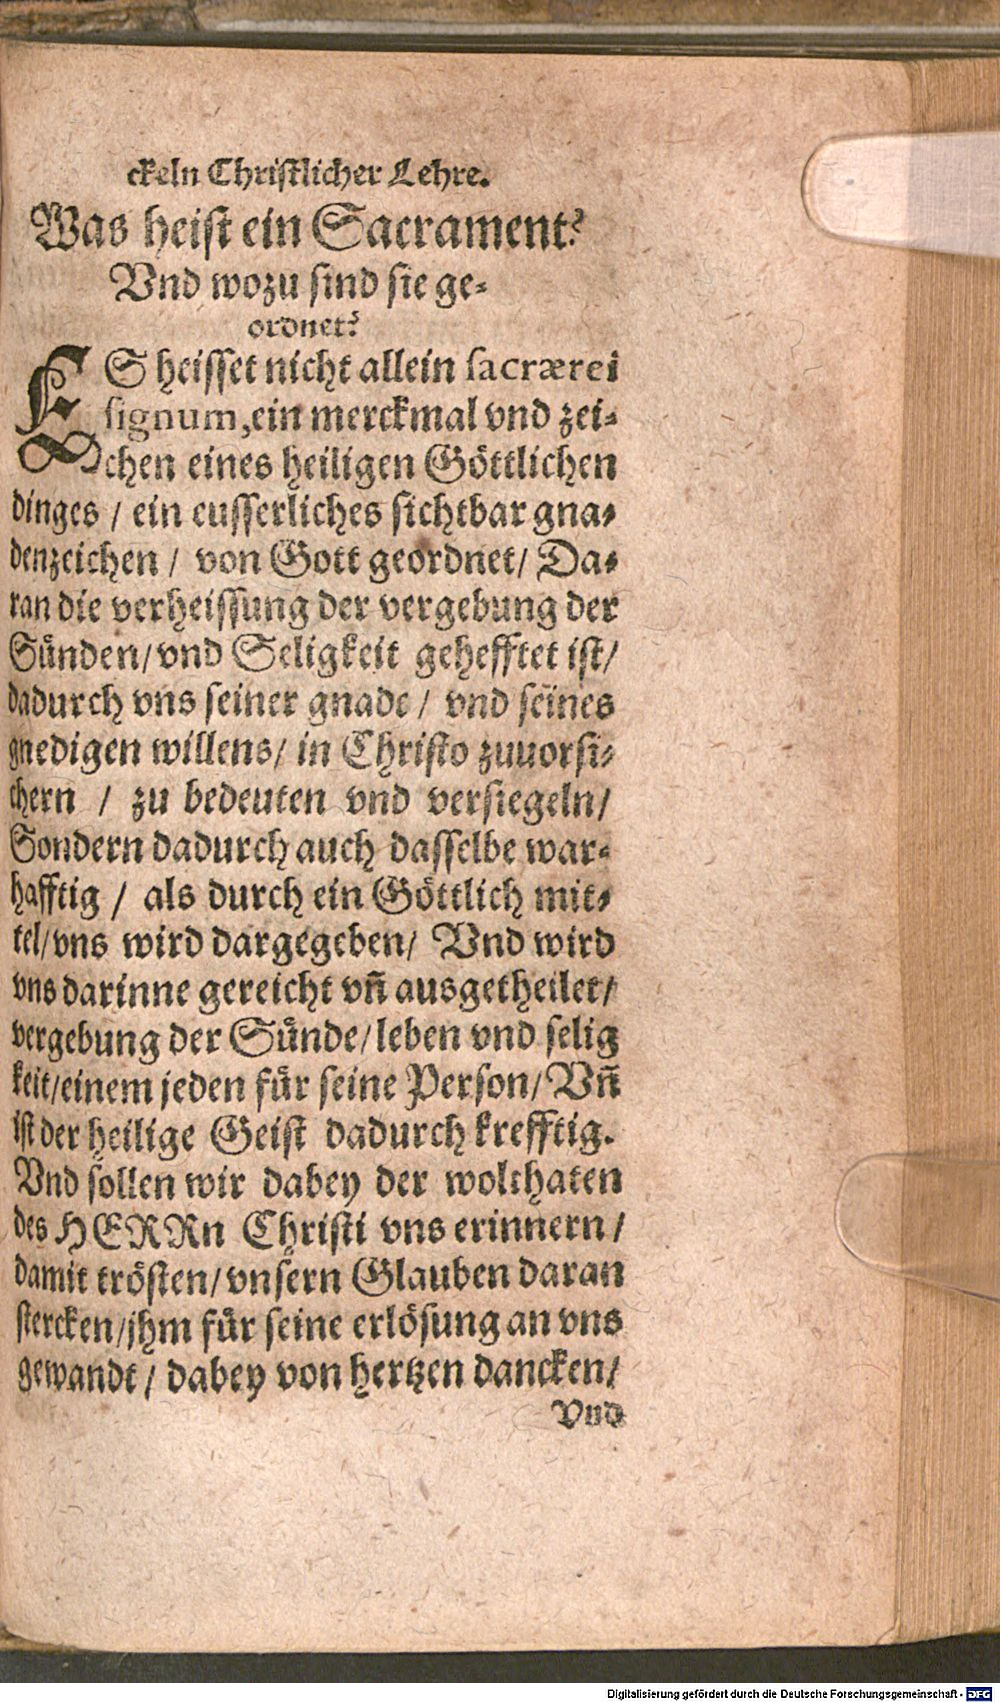 ckeln Christlicher Lehre.
Was heist ein Sacrament?
Vnd wozu sind sie ge-
ordnet?
ES heisset nicht allein sacræ rei
signum, ein merckmal vnd zei-
chen eines heiligen Göttlichen
dinges / ein eusserliches sichtbar gna-
denzeichen / von Gott geordnet / Da-
ran die verheissung der vergebung der
Sünden / vnd Seligkeit gehefftet ist /
dadurch vns seiner gnade / vnd seines
gnedigen willens / in Christo zuuorsi-
chern / zu bedeuten vnd versiegeln /
Sondern dadurch auch dasselbe war-
hafftig / als durch ein Göttlich mit-
tel / vns wird dargegeben / Vnd wird
vns darinne gereicht vñ ausgetheilet /
vergebung der Sünde / leben vnd selig
keit / einem jeden für seine Person / Vñ
ist der heilige Geist dadurch krefftig.
Vnd sollen wir dabey der wolthaten
des HERRn Christi vns erinnern /
damit trösten / vnsern Glauben daran
stercken / jhm für seine erlösung an vns
gewandt / dabey von hertzen dancken /
Vnd
Digitalisierung gefördert durch die Deutsche Forschungsgemeinschaft - DFG